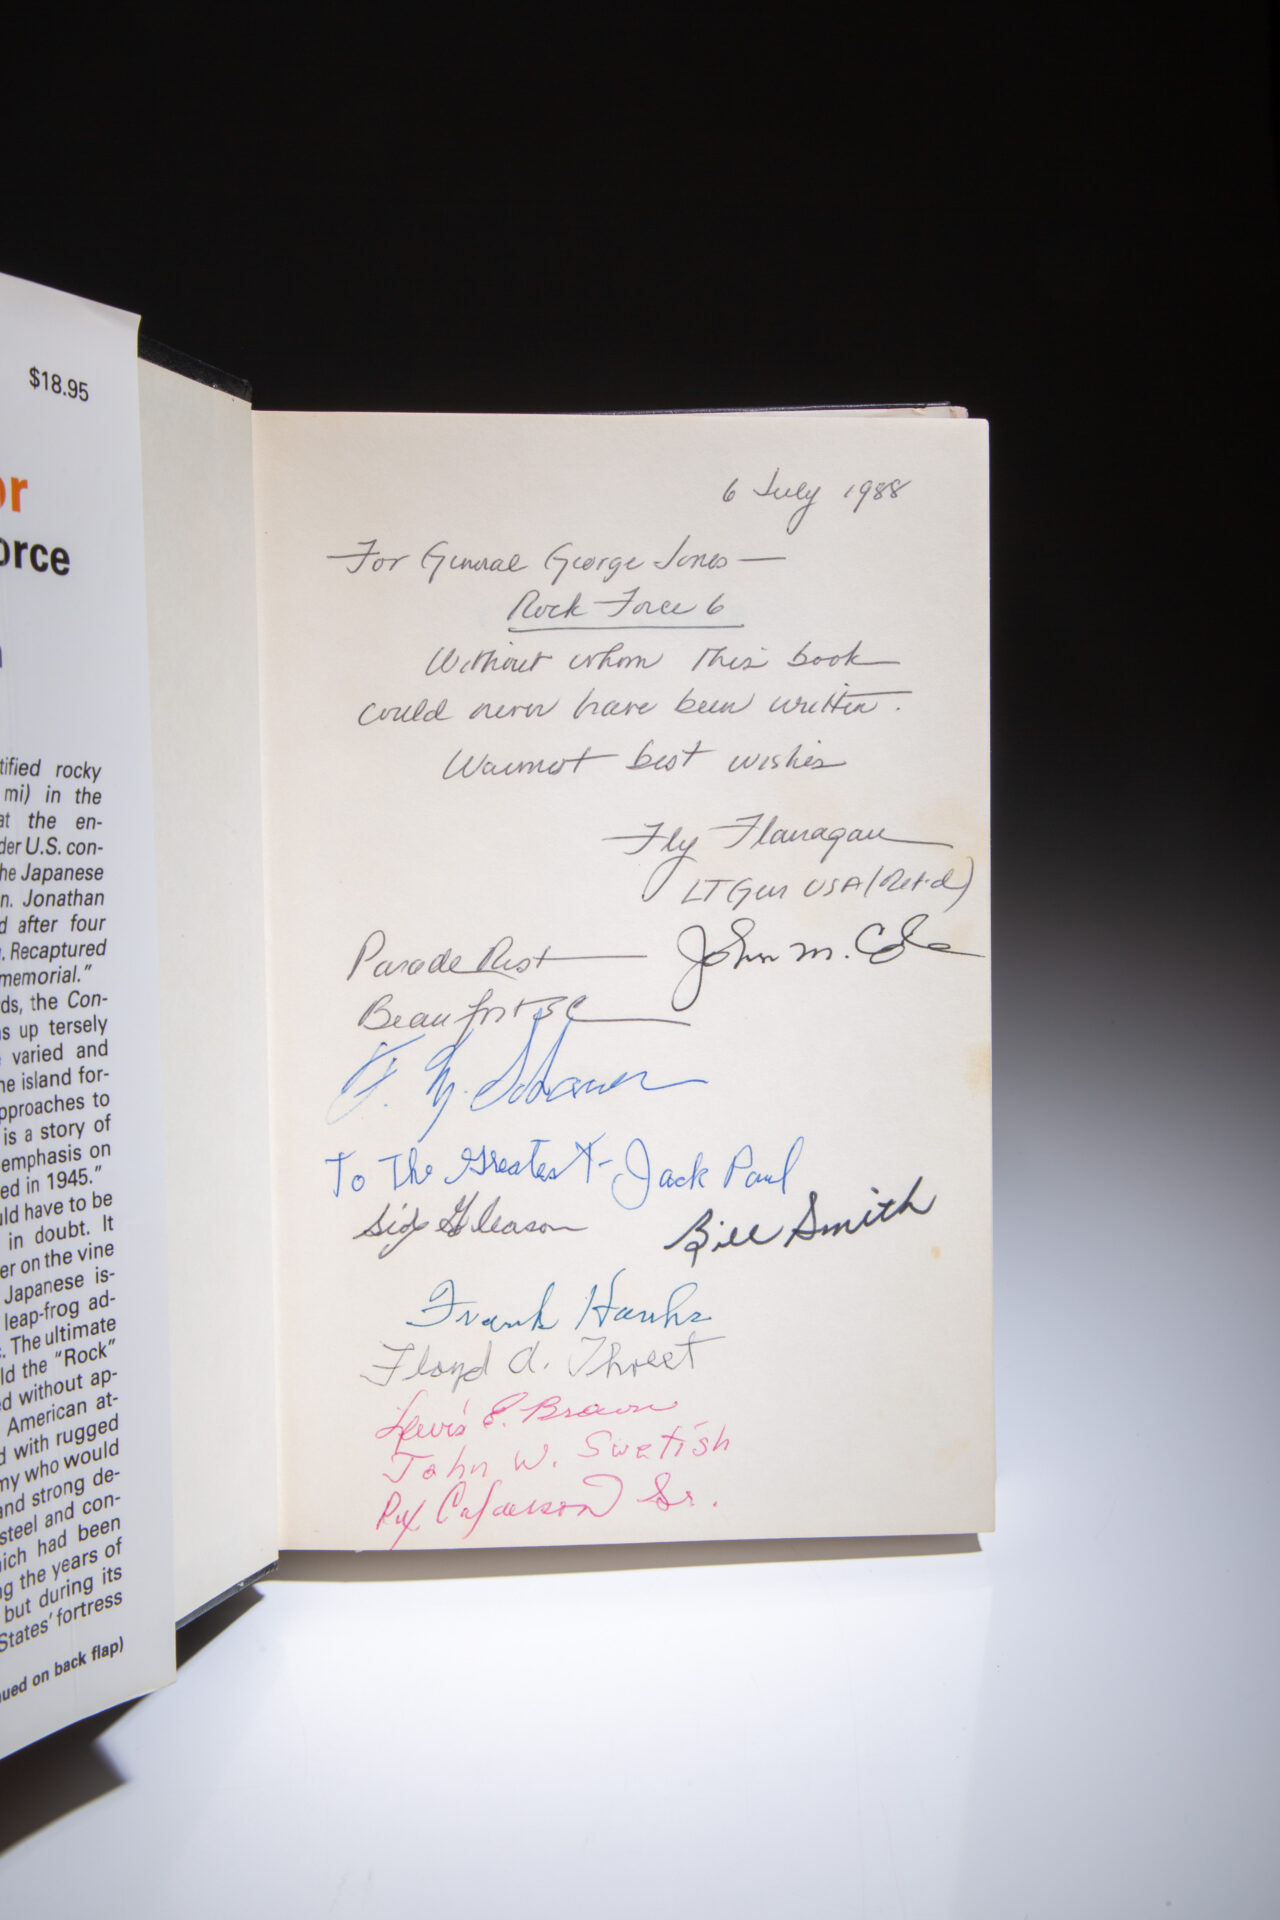 $18.95
or
orce
tified rocky
mi) in the
at the en-
der U.S. con-
he Japanese
n. Jonathan
d after four
. Recaptured
memorial."
ds, the Con-
s up tersely
varied and
ne island for-
pproaches to
is a story of
emphasis on
ed in 1945."
uld have to be
in doubt. It
er on the vine
Japanese is-
leap-frog ad-
c. The ultimate
ld the "Rock"
ed without ap-
American at-
d with rugged
my who would
and strong de-
steel and con-
hich had been
ng the years of
but during its
States' fortress
nued on back flap)
6 July 1988
For General George Jones—
Rock Force 6
Without whom this book
could never have been written.
Warmest best wishes
Fly Flanagan
LT Gen USA (Ret-d)
Parade Rest John M. Cole
Beaufort SC
To The Greatest - Jack Paul
Gleason Bill Smith
Frank Hanks
Floyd A.
Lewis E. Brown
John W. Swetish
Sr.